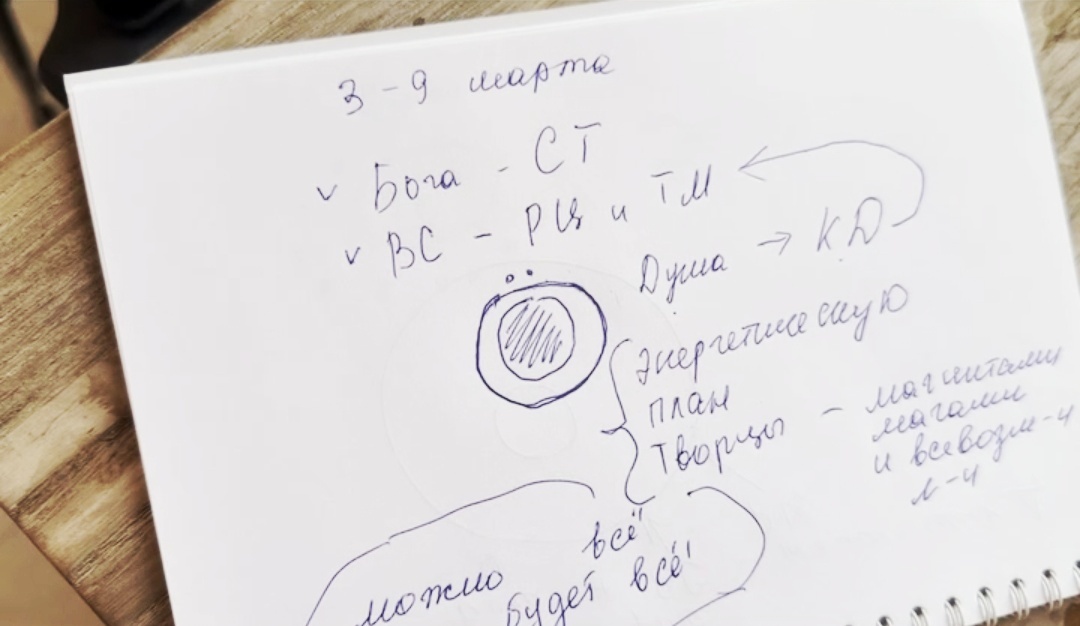 3 - 9 марта
✓ Бога - СТ
✓ ВС - РЦ и ТМ
Душа → КД
энергетическую
план
Творцы - магнитами
магами
и всевозм-и
л-и
можно всё
будет всё!